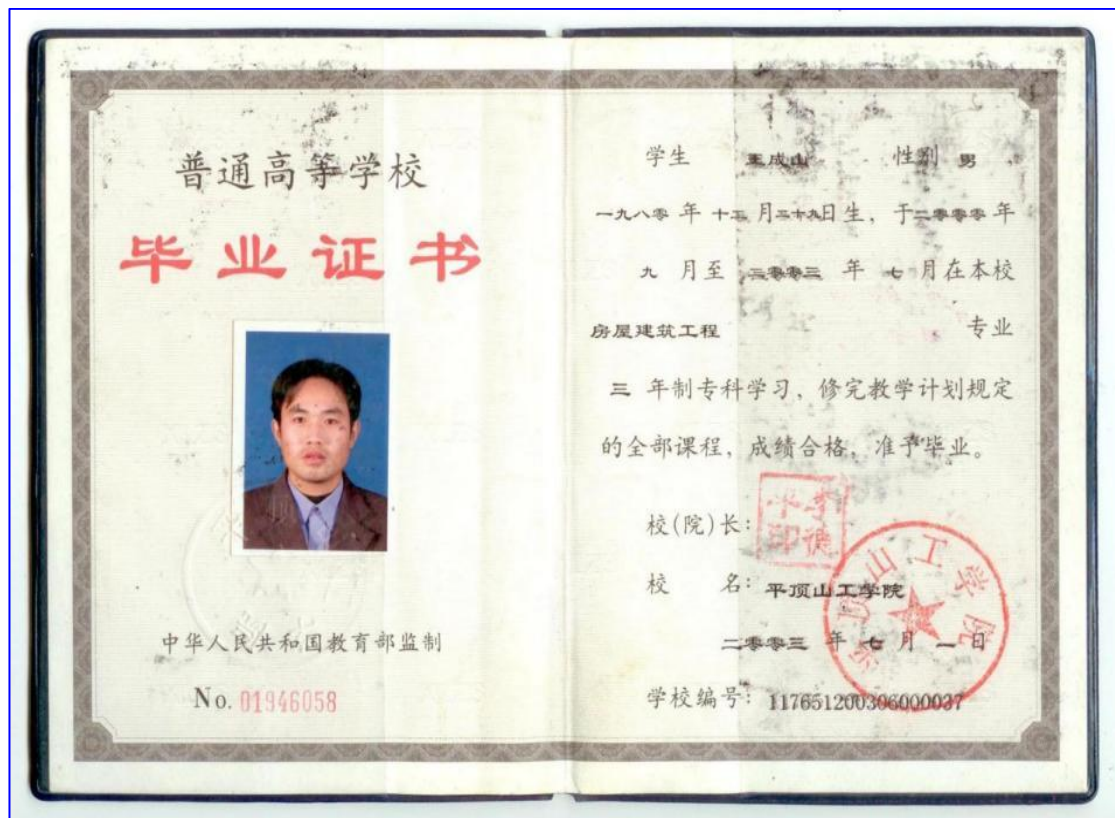 普通高等学校
毕业证书
中华人民共和国教育部监制
No. 01946058
学生 王成山 性别 男
一九八零 年 十二 月 二十九日 生，于 二零零零 年
九 月至 二零零三 年 七 月在本校
房屋建筑工程 专业
三 年制专科学习，修完教学计划规定
的全部课程，成绩合格，准予毕业。
校(院)长：
校 名：平顶山工学院
二零零三 年 七 月 一 日
学校编号：117651200306000037
平顶山工学院